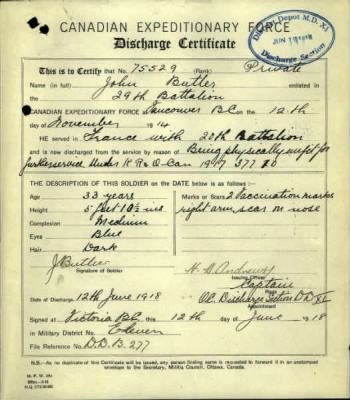 CANADIAN EXPEDITIONARY FORCE
Discharge Certificate
Depot M.D. XI
JUN 1918
Discharge Section
This is to Certify that No. 75529 (Rank) Private
Name (in full) John Butler enlisted in
29th Battalion
CANADIAN EXPEDITIONARY FORCE at Vancouver BC on the 12th
day of November 1914
HE served in France with 29th Battalion
and is now discharged from the service by reason of Being physically unfit for
further service Under K R & O Can 1917 377
THE DESCRIPTION OF THIS SOLDIER on the DATE below is as follows :-
Age 33 years
Height 5 feet 10½ ins
Complexion Medium
Eyes Blue
Hair Dark
Marks or Scars 2 Vaccination marks
right arm, scar on nose
J Butler
Signature of Soldier
H. Andrews
Issuing Officer
Captain
Rank
O.C. Discharge Section D.D. XI
Appointment
Date of Discharge 12th June 1918
Signed at Victoria BC this 12th day of June 1918
in Military District No. Eleven
File Reference No. D.D. B. 277
N.B.- As no duplicate of this Certificate will be issued, any person finding same is requested to forward it in an unstamped
envelope to the Secretary, Militia Council, Ottawa, Canada.